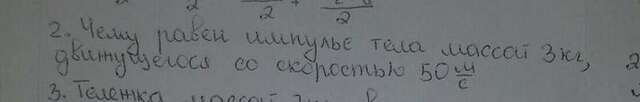 2 + 2
2. Чему равен импульс тела массой 3 кг,
движущегося со скоростью 50 м/с 2
3. Тележка массой